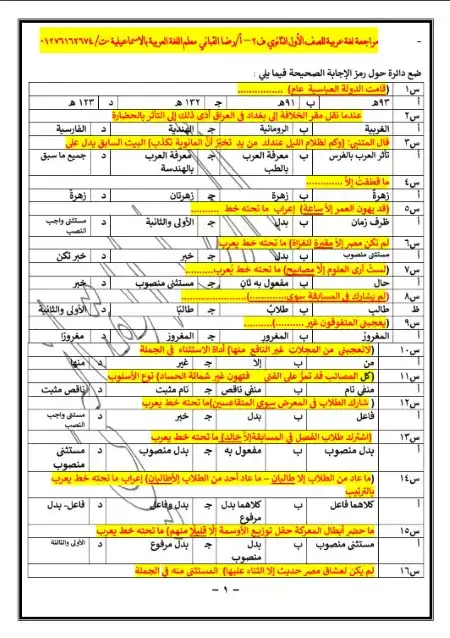 - مراجعة لغة عربية للصف الأول الثانوي ف٢ – أ/ رضا القباني معلم اللغة العربية بالإسماعيلية -ت/ ٠١٢٧٦١٦٢٦٧٤
ضع دائرة حول رمز الإجابة الصحيحة فيما يلي :
س١ (قامت الدولة العباسية عام) ................
أ ٩٣هـ ب ٩١هـ ج ١٣٢ هـ د ١٢٣ هـ
س٢ عندما نقل مقر الخلافة إلى بغداد في العراق أدى ذلك إلى التأثر بالحضارة
أ الغربية ب الرومانية ج الهندية د الفارسية
س٣ قال المتنبي: (وكم لظلام الليل عندك من يدٍ تخبّرُ أنَّ المانوية تكذب) البيت السابق يدل على
أ تأثر العرب بالفرس ب معرفة العرب بالطب ج معرفة العرب بالهندسة د جميع ما سبق
س٤ ما قطفتُ إلا .............
أ زهرةً ب زهرة ج زهرتان د زهرةٌ
س٥ (قد يهون العمر إلا ساعة) إعراب ما تحته خط ..........
أ ظرف زمان ب بدل ج الأولى والثانية د مستثنى واجب النصب
س٦ لم تكن مصر إلا مقبرة للغزاة) ما تحته خط يعرب
أ مستثنى منصوب ب بدل ج خبر د خبر تكن
س٧ (لستُ أرى العلوم إلا مصابيح) ما تحته خط يُعرب..........
أ حال ب مفعول به ثانٍ ج مستثنى منصوب د خبر
س٨ (لم يشارك في المسابقة سوى.............)......................
ظ طالب ب طلابٌ ج طالبًا د الأولى والثانية
س٩ (يعجبني المتفوقون غير ..........)..........
أ المغرورُ ب المغرور ج المغرورَ د مغرورًا
س١٠ (لا تعجبني من المجلات غير النافع منها) أداة الاستثناء في الجملة
أ من ب إلا ج غير د منها
س١١ (كل المصائب قد تمرُّ على الفتى فتهون غير شماتة الحساد) نوع الأسلوب
أ منفي تام ب منفي ناقص ج تام مثبت د ناقص مثبت
س١٢ ( شارك الطلاب في المعرض سوى المتقاعسين)ما تحته خط يعرب
أ فاعل ب بدل ج خبر د مستثنى واجب النصب
س١٣ (اشترك طلاب الفصل في المسابقة إلا خالدٍ) ما تحته خط يعرب
أ بدل منصوب ب مفعول به ج بدل منصوب د مستثنى منصوب
س١٤ (ما عاد من الطلاب إلا طالبان – ما عاد أحد من الطلاب إلا طالبان) إعراب ما تحته خط يعرب بالترتيب
أ كلاهما فاعل ب كلاهما بدل مرفوع ج بدل وفاعل د فاعل- بدل
س١٥ ما حضر أبطال المعركة حفل توزيع الأوسمة إلا قليلا منهم) ما تحته خط يعرب
أ مستثنى منصوب ب بدل منصوب ج بدل مرفوع د الأولى والثالثة
س١٦ لم يكن لعشاق مصر حديث إلا الثناء عليها) المستثنى منه في الجملة
– ١ –